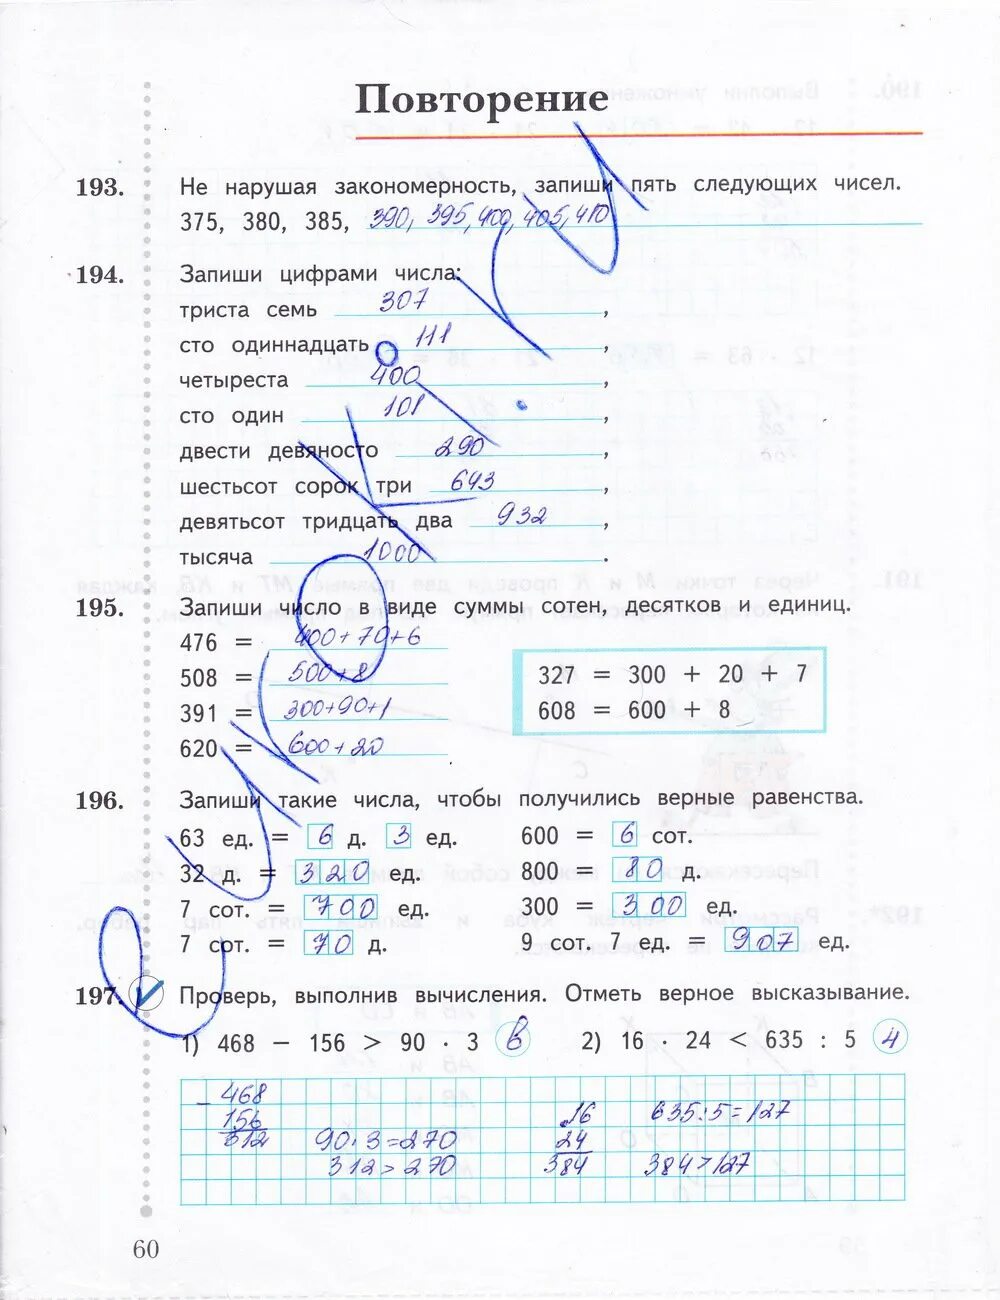 Повторение
193. Не нарушая закономерность, запиши пять следующих чисел.
375, 380, 385, 390, 395, 400, 405, 410
194. Запиши цифрами числа:
триста семь 307,
сто одиннадцать 111,
четыреста 400,
сто один 101,
двести девяносто 290,
шестьсот сорок три 643,
девятьсот тридцать два 932,
тысяча 1000.
195. Запиши число в виде суммы сотен, десятков и единиц.
476 = 400+70+6
508 = 500+8
391 = 300+90+1
620 = 600+20
327 = 300 + 20 + 7
608 = 600 + 8
196. Запиши такие числа, чтобы получились верные равенства.
63 ед. = 6 д. 3 ед. 600 = 6 сот.
32 д. = 320 ед. 800 = 80 д.
7 сот. = 700 ед. 300 = 300 ед.
7 сот. = 70 д. 9 сот. 7 ед. = 907 ед.
197. Проверь, выполнив вычисления. Отметь верное высказывание.
1) 468 − 156 > 90 · 3 в 2) 16 · 24 < 635 : 5 ч
468
156
312
90·3=270
312>270
16
24
384
635:5=127
384>127
60